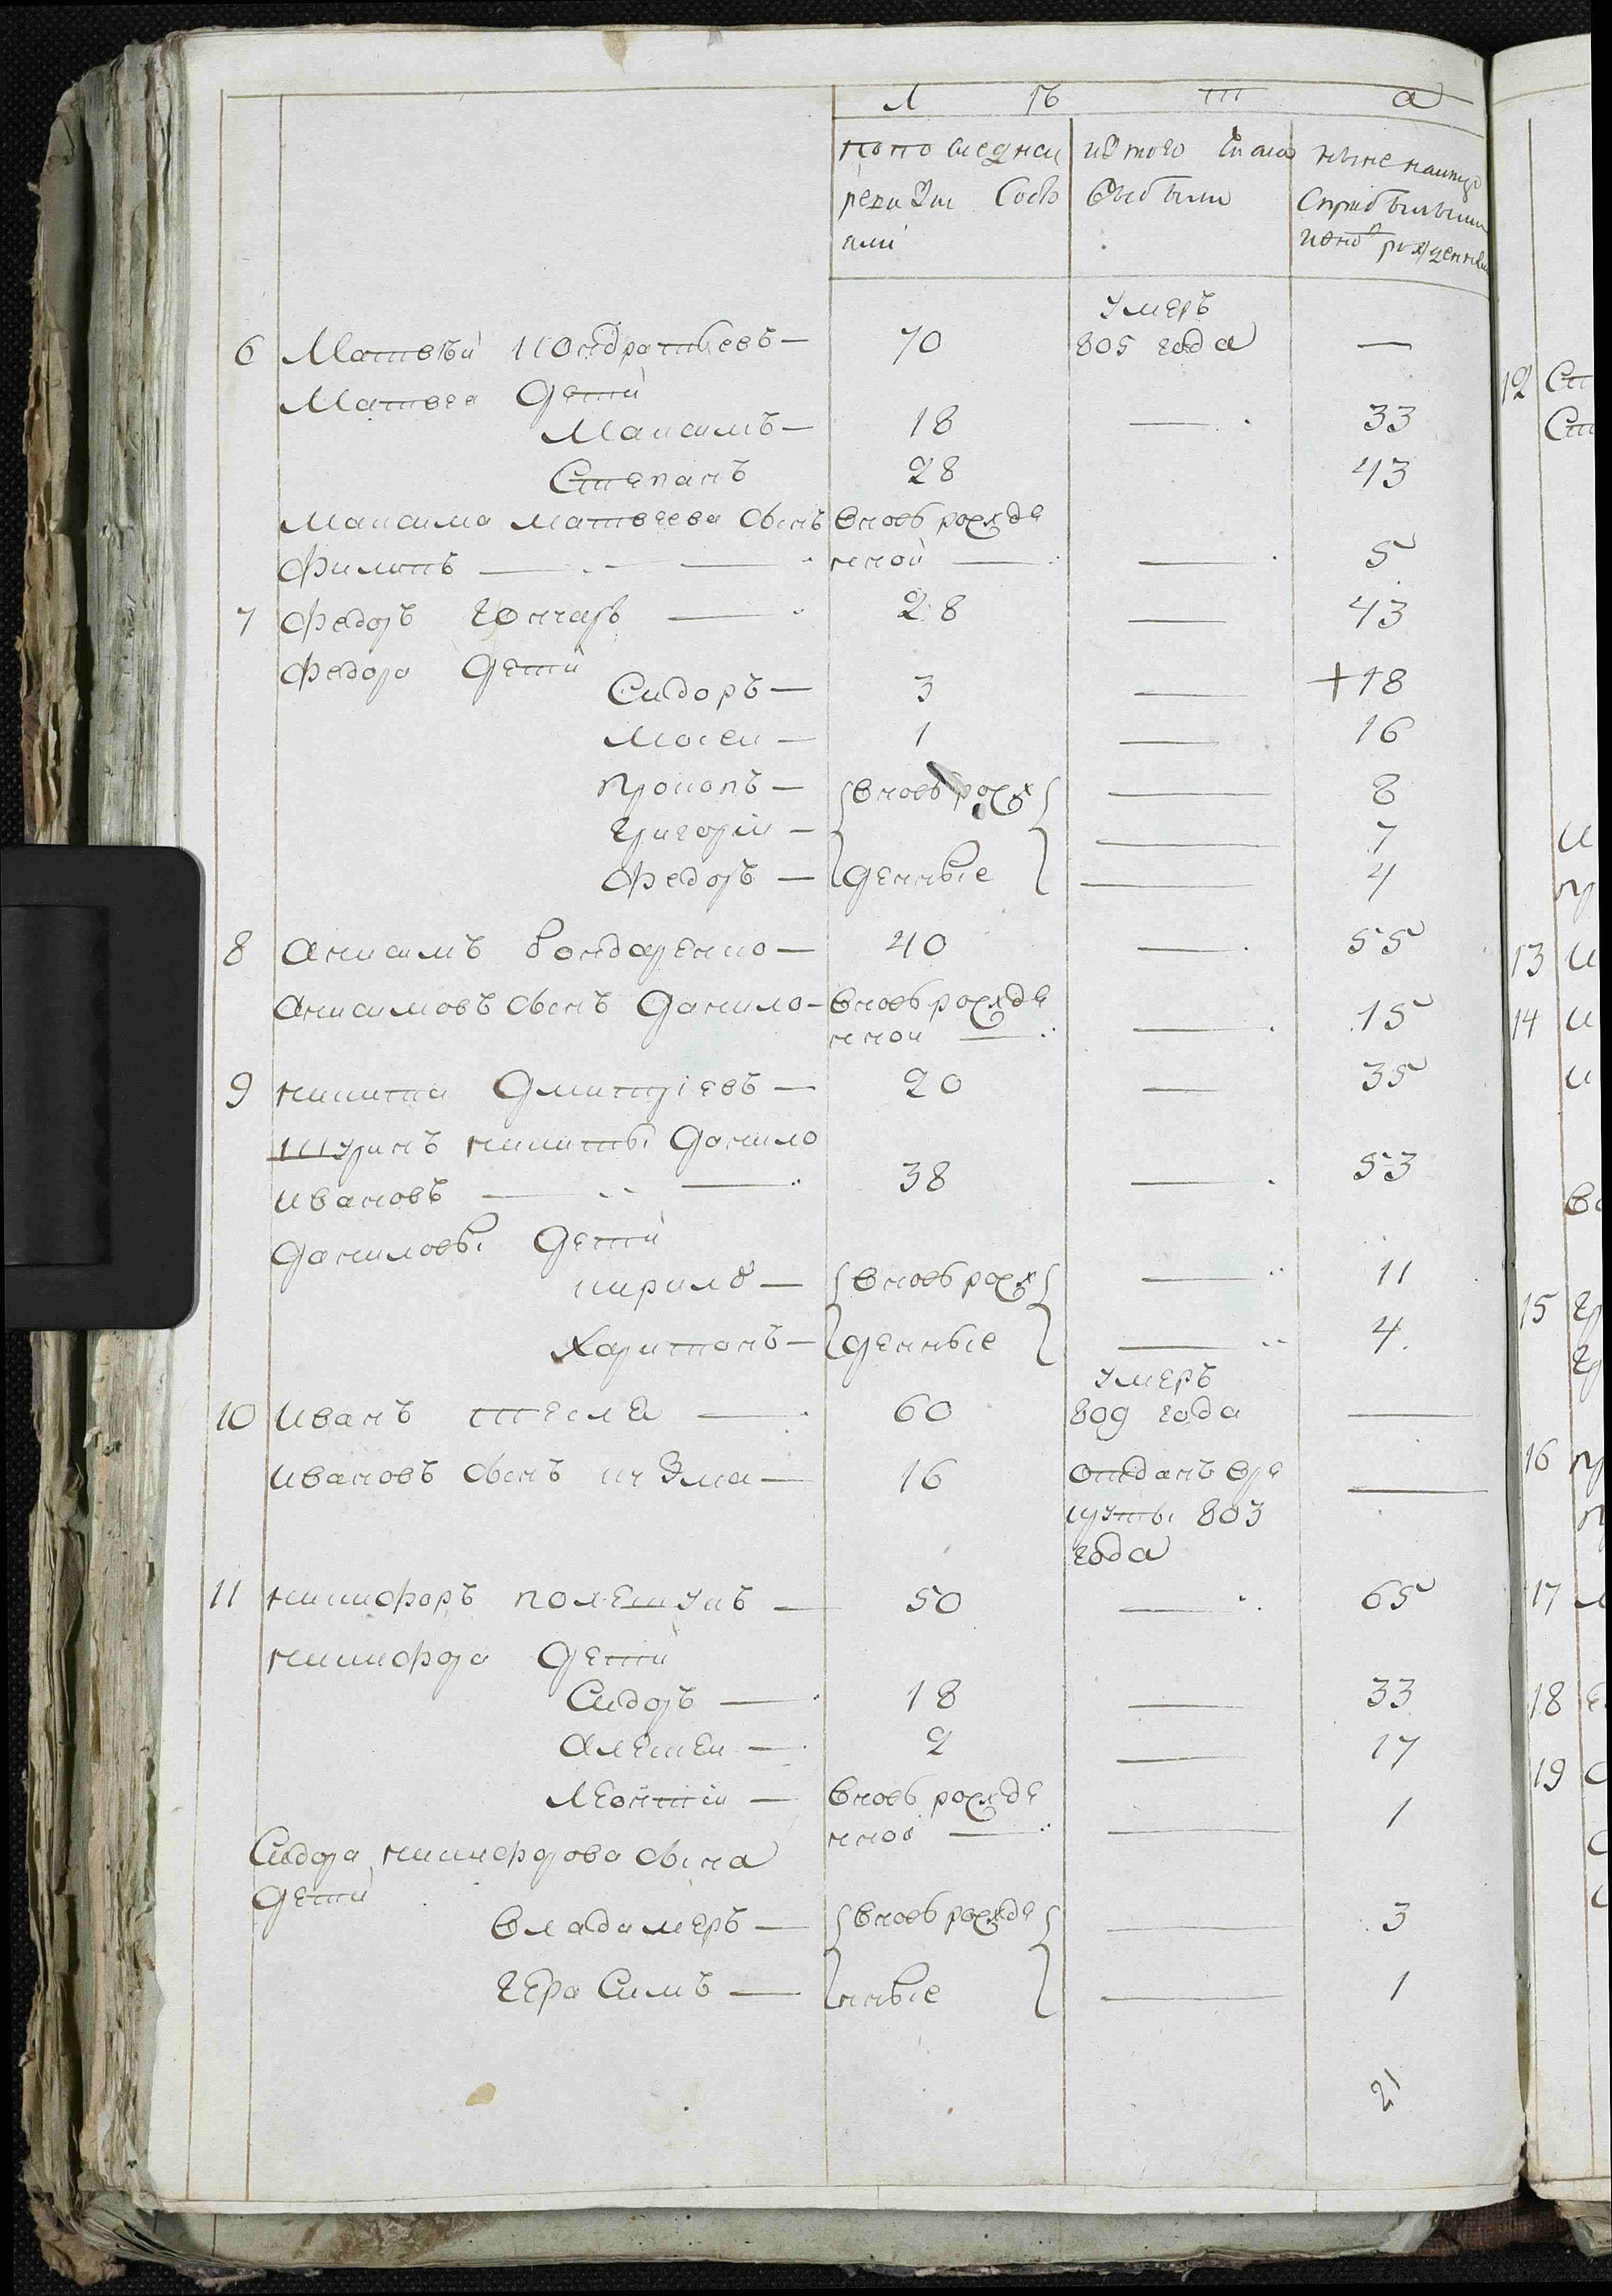 Л ѣ т а
по последней ревизiи состояли
из того числа выбыли
ныне налицо с прибылыми и новорожденными
6 Матвѣй Кондратьевъ — 70 умеръ 805 года —
Матвея дети
Максимъ — 18 — 33
Степанъ 28 43
Максима Матвеева сынъ вновь рожде
Филипъ — нной — 5
7 Федоръ Гончаръ — 28 — 43
Федора дети
Сидоръ — 3 — +18
Мосеи — 1 — 16
Прокопъ — вновь рож — 8
Григорiи — — 7
Федоръ — денные — 4
8 Анисимъ Бондаренко — 40 — 55
Анисимовъ сынъ Данило — вновь рожде
нной — — 15
9 Никита Дмитрiевъ — 20 — 35
Шуринъ Никиты Данило
Ивановъ — 38 — 53
Даниловы дети
Кирило — вновь рож — 11
Харитонъ — денные — 4
10 Иванъ Тесля — 60 умеръ 809 года —
Ивановъ сынъ Кузма — 16 отданъ в ре —
круты 803
года
11 Никифоръ Полешукъ — 50 — 65
Никифора дети
Сидоръ — 18 — 33
Алексеи — 2 — 17
Леонтiи — вновь рожде
нной — — 1
Сидора Никифорова сына
дети
Владимеръ — вновь рожде — 3
Герасимъ — нные — 1
21
12 Ст
Ст
И
Пр
13 И
14 И
И
15 Гр
Гр
16 Пр
П
17
18
19